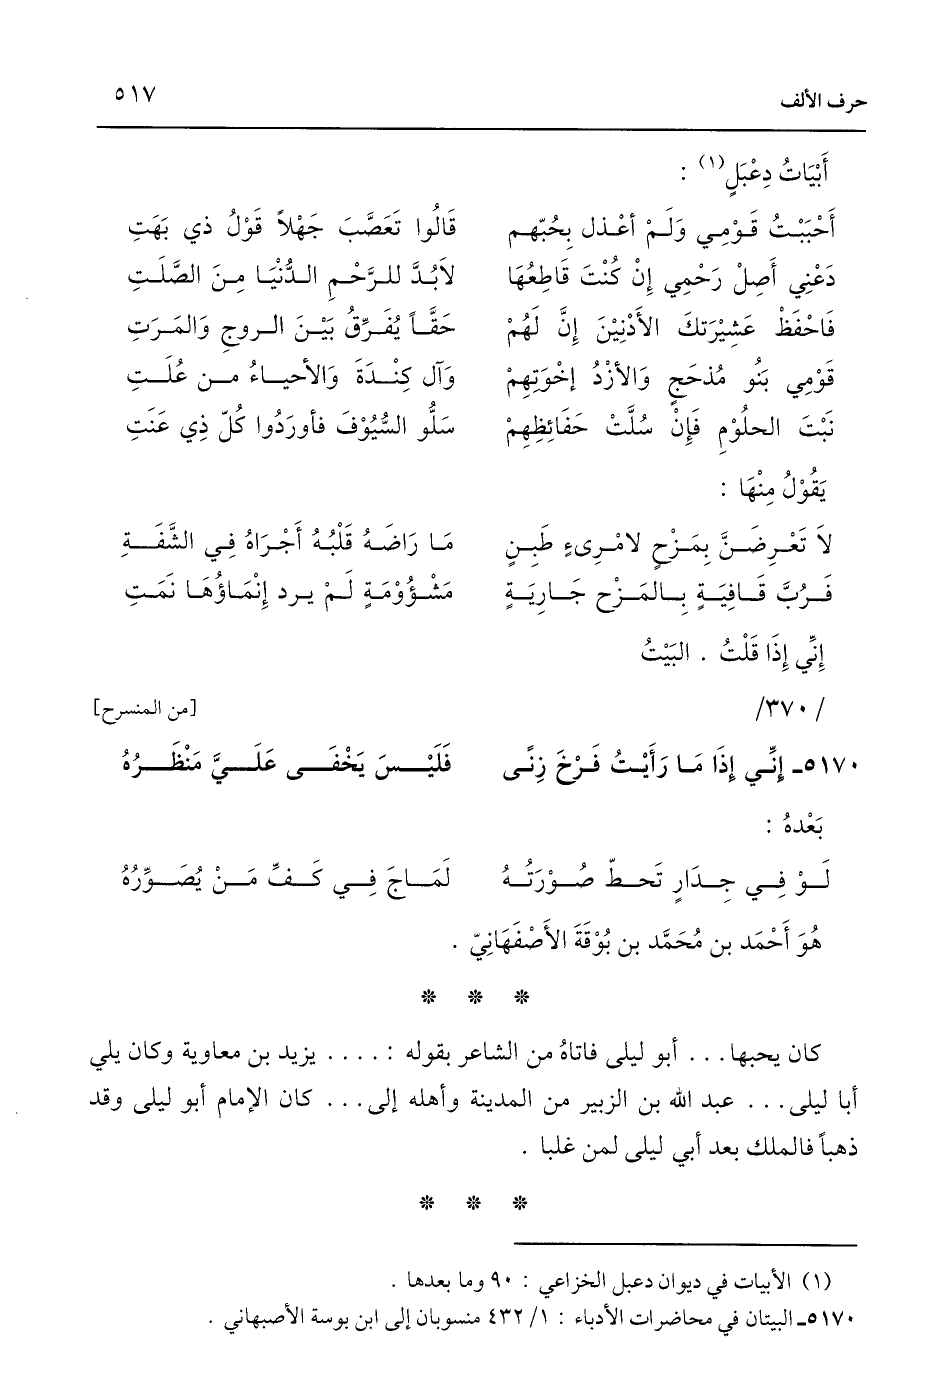 حرف الألف ٥١٧
أَبْيَاتُ دِعْبَلٍ(١) :
أَحْبَبْتُ قَوْمِي وَلَمْ أعْذل بِحُبّهِم قَالُوا تَعَصَّبَ جَهْلاً قَوْلُ ذي بَهَتِ
دَعْنِي أَصِلْ رَحْمِي إِنْ كُنْتَ قَاطِعُهَا لاَبُدَّ للرَّحْمِ الدُّنْيَا مِنَ الصَّلَتِ
فَاحْفَظْ عَشِيْرَتكَ الأَدْنِيْنَ إِنَّ لَهُمْ حَقَّاً يُفَرِّقُ بَيْنَ الروجِ وَالمَرَتِ
قَوْمِي بَنُو مُذحَجٍ وَالأزْدُ إخْوَتهِمْ وَآل كِنْدَةَ وَالأحياءُ من عُلَتِ
نَبْتَ الحلُوْمِ فَإِنْ سُلَّتْ حَفَائِظِهِمْ سَلُّو السُّيُوْفَ فأورَدُوا كُلّ ذِي عَنَتِ
يَقُوْلُ مِنْهَا :
لاَ تَعْرِضَنَّ بِمَزْحٍ لامْرِىءٍ طَبِنٍ مَا رَاضَهُ قَلْبُهُ أَجْرَاهُ فِي الشَّفَةِ
فَرُبَّ قَافِيَةٍ بِالمَزْحِ جَارِيَةٍ مَشْؤُوْمَةٍ لَمْ يرد إِنْمَاؤُهَا نَمَتِ
إِنِّي إِذَا قَلْتُ . البَيْتُ
/ ٣٧٠/ [من المنسرح]
٥١٧٠ـ إِنِّي إِذَا مَا رَأَيْتُ فَرْخَ زِنًى فَلَيْسَ يَخْفَى عَلَيَّ مَنْظَرُهُ
بَعْدهُ :
لَوْ فِي جِدَارٍ تَحطّ صُوْرَتُهُ لَمَاجَ فِي كَفِّ مَنْ يُصَوِّرُهُ
هُوَ أَحْمَد بن مُحَمَّد بن بُوْقَةَ الأَصْفَهَانِيّ .
❊ ❊ ❊
كان يحبها... أبو ليلى فاتاهُ من الشاعر بقوله : .... يزيد بن معاوية وكان يلي
أبا ليلى... عبد الله بن الزبير من المدينة وأهله إلى... كان الإمام أبو ليلى وقد
ذهباً فالملك بعد أبي ليلى لمن غلبا .
❊ ❊ ❊
(١) الأبيات في ديوان دعبل الخزاعي : ٩٠ وما بعدها .
٥١٧٠ـ البيتان في محاضرات الأدباء : ١/ ٤٣٢ منسوبان إلى ابن بوسة الأصبهاني .